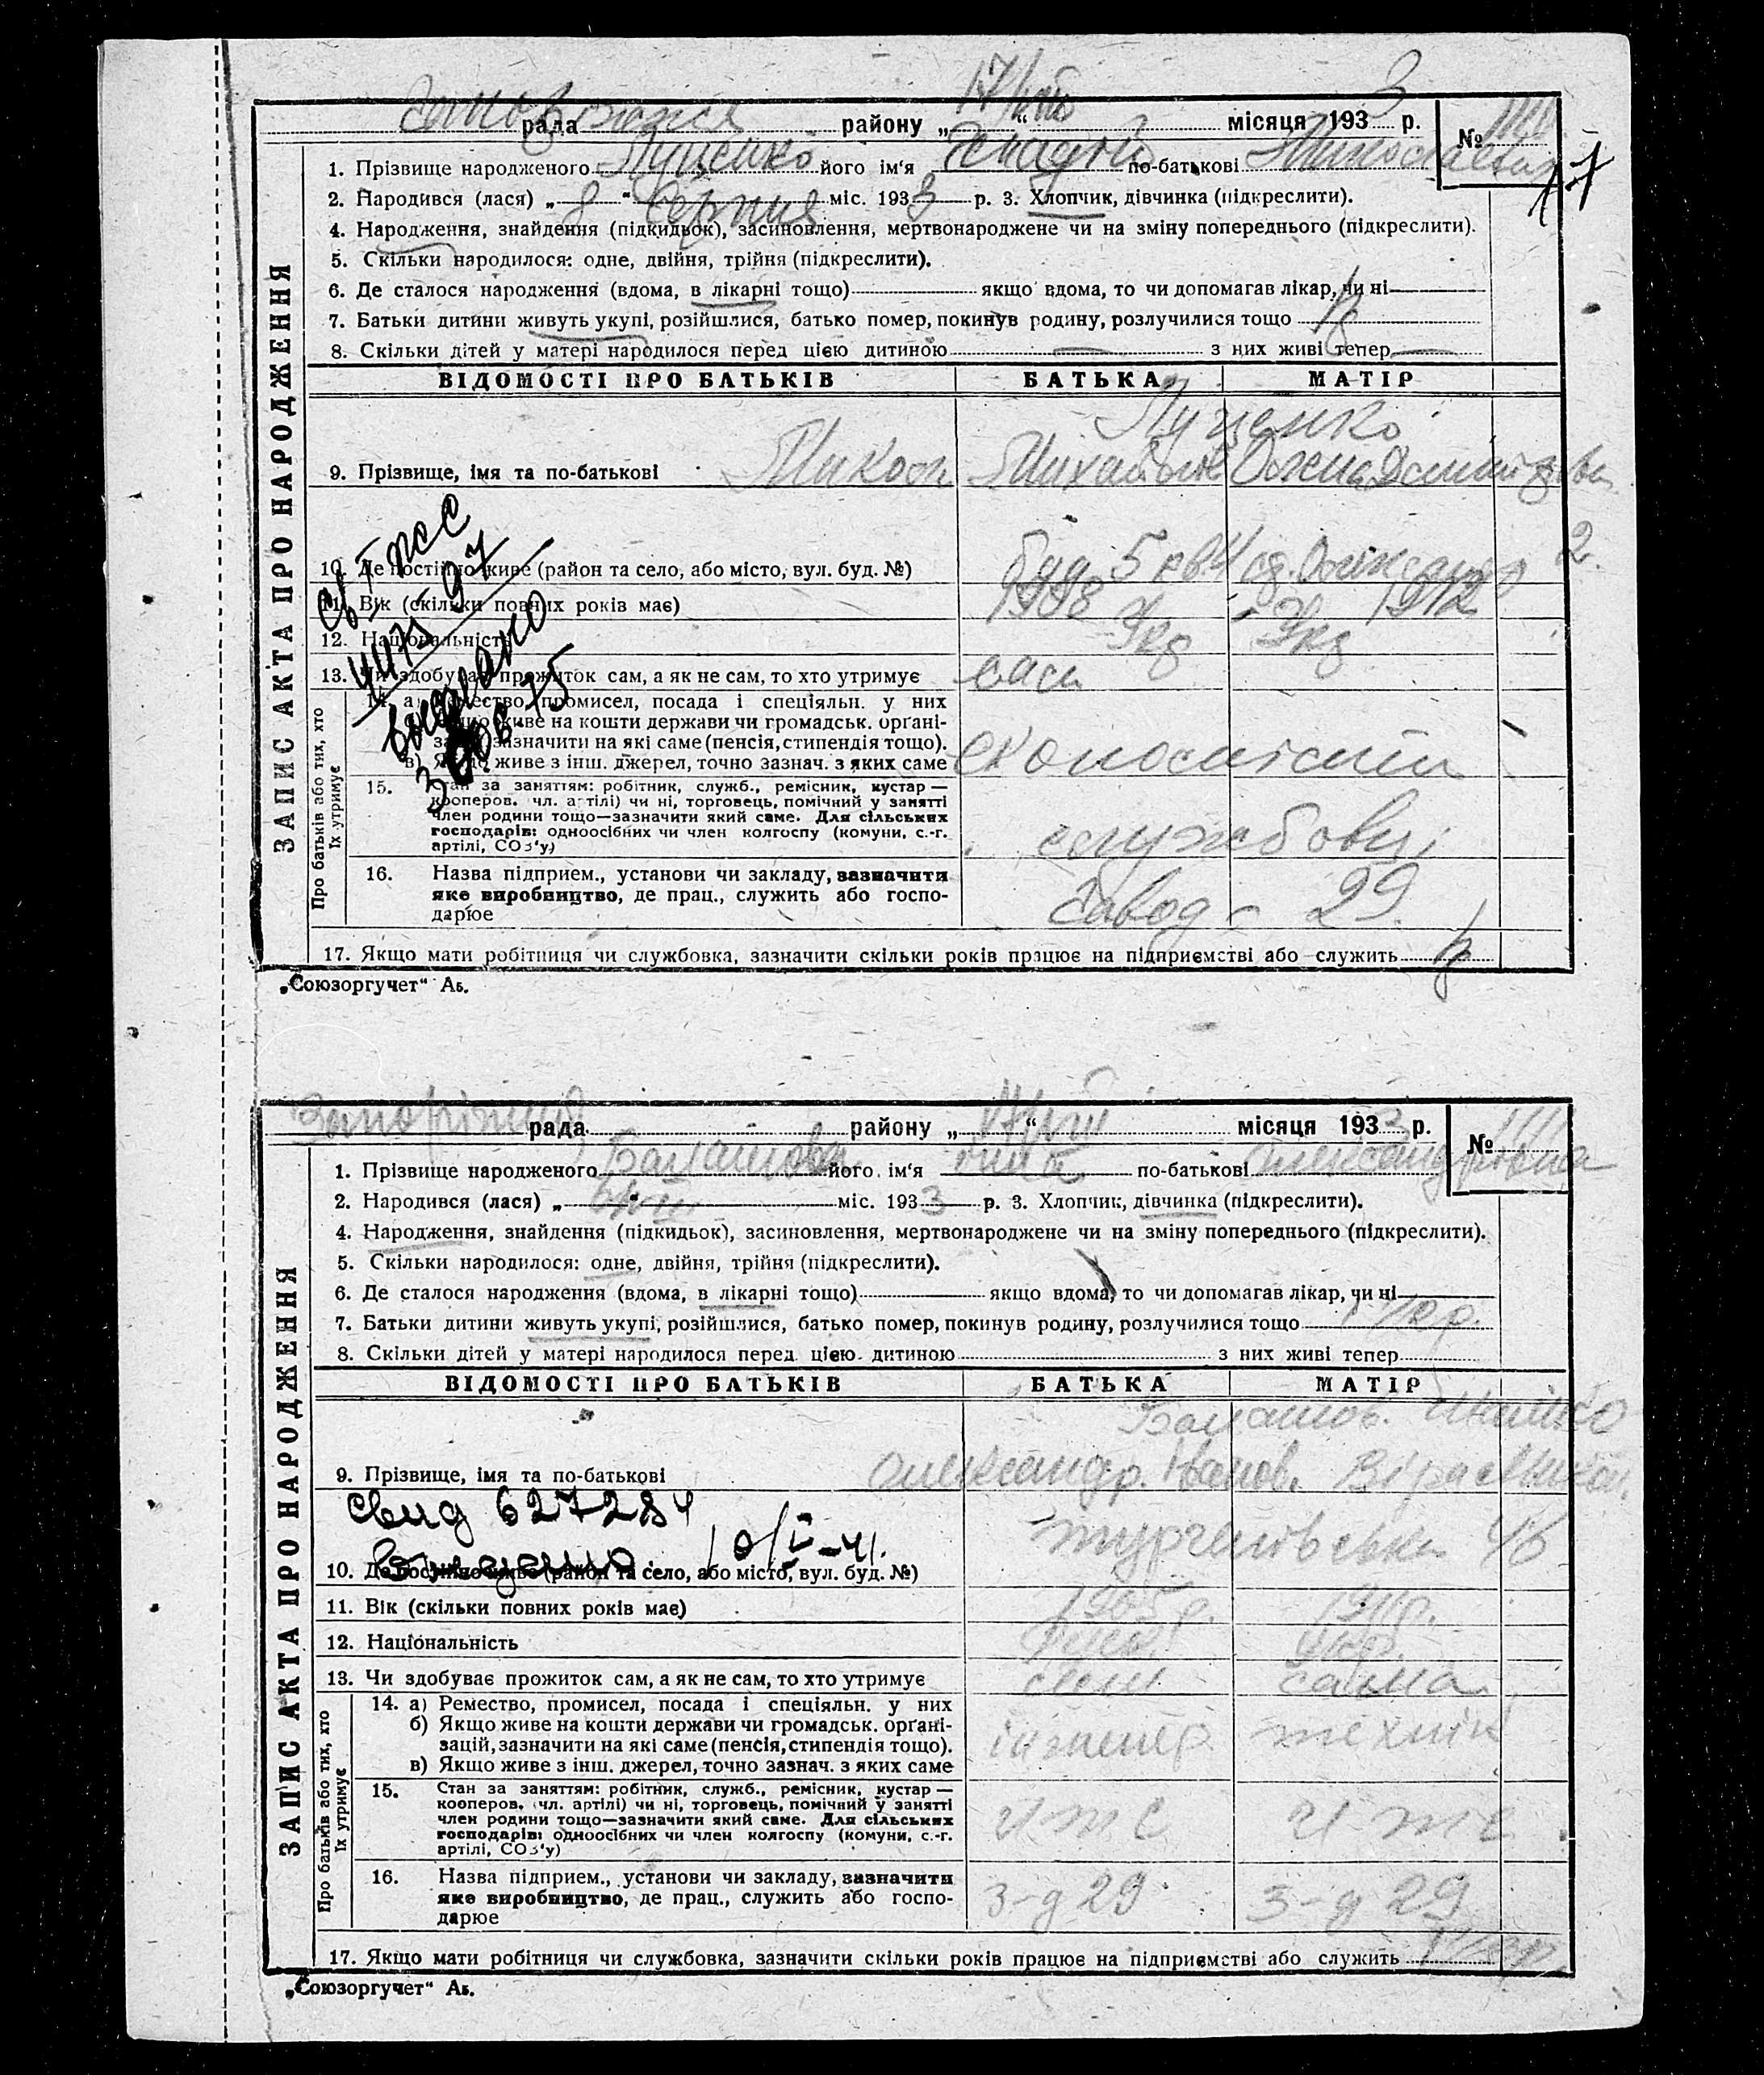 рада району „ “ місяця 1933 р. №
1. Прізвище народженого Луценко його ім‘я по-батькові Миколаевич
2. Народився (лася) „ 8 “ Серпня міс. 1933 р. 3. Хлопчик, дівчинка (підкреслити).
4. Народження, знайдення (підкидьок), засиновлення, мертвонароджене чи на зміну попереднього (підкреслити).
5. Скільки народилося: одне, двійня, трійня (підкреслити).
6. Де сталося народження (вдома, в лікарні тощо) якщо вдома, то чи допомагав лікар, чи ні
7. Батьки дитини живуть укупі, розійшлися, батько помер, покинув родину, розлучилися тощо
8. Скільки дітей у матері народилося перед цією дитиною — з них живі тепер —
ЗАПИС АКТА ПРО НАРОДЖЕННЯ
ВІДОМОСТІ ПРО БАТЬКІВ БАТЬКА МАТІР
Луценко
9. Прізвище, імя та по-батькові Микола
10. Де постійно живе (район та село, або місто, вул. буд. №) буд. 5 кв. 4 2.
11. Вік (скільки повних років має) 1912
12. Національність Укр Укр
13. Чи здобуває прожиток сам, а як не сам, то хто утримує сам
Про батьків або тих, хто їх утримує
14. а) Ремество, промисел, посада і спеціяльн. у них
живе на кошти держави чи громадськ. орґані-
зазначити на які саме (пенсія, стипендія тощо).
в) Якщо живе з інш. джерел, точно зазнач. з яких саме економіст
15. Стан за заняттям: робітник, служб., ремісник, кустар —
кооперов. чл. артілі) чи ні, торговець, помічний у занятті
член родини тощо—зазначити який саме. Для сільських
господарів: одноосібних чи член колгоспу (комуни, с.-г.
артілі, СОЗ‘у) службовц
16. Назва підприєм., установи чи закладу, зазначити
яке виробництво, де прац., служить або госпо-
дарює Завод 29.
17. Якщо мати робітниця чи службовка, зазначити скільки років працює на підприємстві або служить
„Союзоргучет“ Аь.
Запоріжський рада району „ “ місяця 1933 р. №
1. Прізвище народженого Балашова його ім‘я по-батькові Олександрівна
2. Народився (лася) „ “ міс. 1933 р. 3. Хлопчик, дівчинка (підкреслити).
4. Народження, знайдення (підкидьок), засиновлення, мертвонароджене чи на зміну попереднього (підкреслити).
5. Скільки народилося: одне, двійня, трійня (підкреслити).
6. Де сталося народження (вдома, в лікарні тощо) якщо вдома, то чи допомагав лікар, чи ні
7. Батьки дитини живуть укупі, розійшлися, батько помер, покинув родину, розлучилися тощо
8. Скільки дітей у матері народилося перед цією дитиною з них живі тепер
ЗАПИС АКТА ПРО НАРОДЖЕННЯ
ВІДОМОСТІ ПРО БАТЬКІВ БАТЬКА МАТІР
Балашов.
9. Прізвище, імя та по-батькові Олександр. Іванов. Віра Микол.
свид 627284
выдано 10/V-41.
10. Де постійно живе (район та село, або місто, вул. буд. №) Тургенівська 46
11. Вік (скільки повних років має) 1905 р.
12. Національність Руск. укр.
13. Чи здобуває прожиток сам, а як не сам, то хто утримує сам сама
Про батьків або тих, хто їх утримує
14. а) Ремество, промисел, посада і спеціяльн. у них
б) Якщо живе на кошти держави чи громадськ. орґані-
зацій, зазначити на які саме (пенсія, стипендія тощо).
в) Якщо живе з інш. джерел, точно зазнач. з яких саме інженер технік
15. Стан за заняттям: робітник, служб., ремісник, кустар —
кооперов. чл. артілі) чи ні, торговець, помічний у занятті
член родини тощо—зазначити який саме. Для сільських
господарів: одноосібних чи член колгоспу (комуни, с.-г.
артілі, СОЗ‘у) итс итс
16. Назва підприєм., установи чи закладу, зазначити
яке виробництво, де прац., служить або госпо-
дарює з-д 29 з-д 29
17. Якщо мати робітниця чи службовка, зазначити скільки років працює на підприємстві або служить
„Союзоргучет“ Аь.